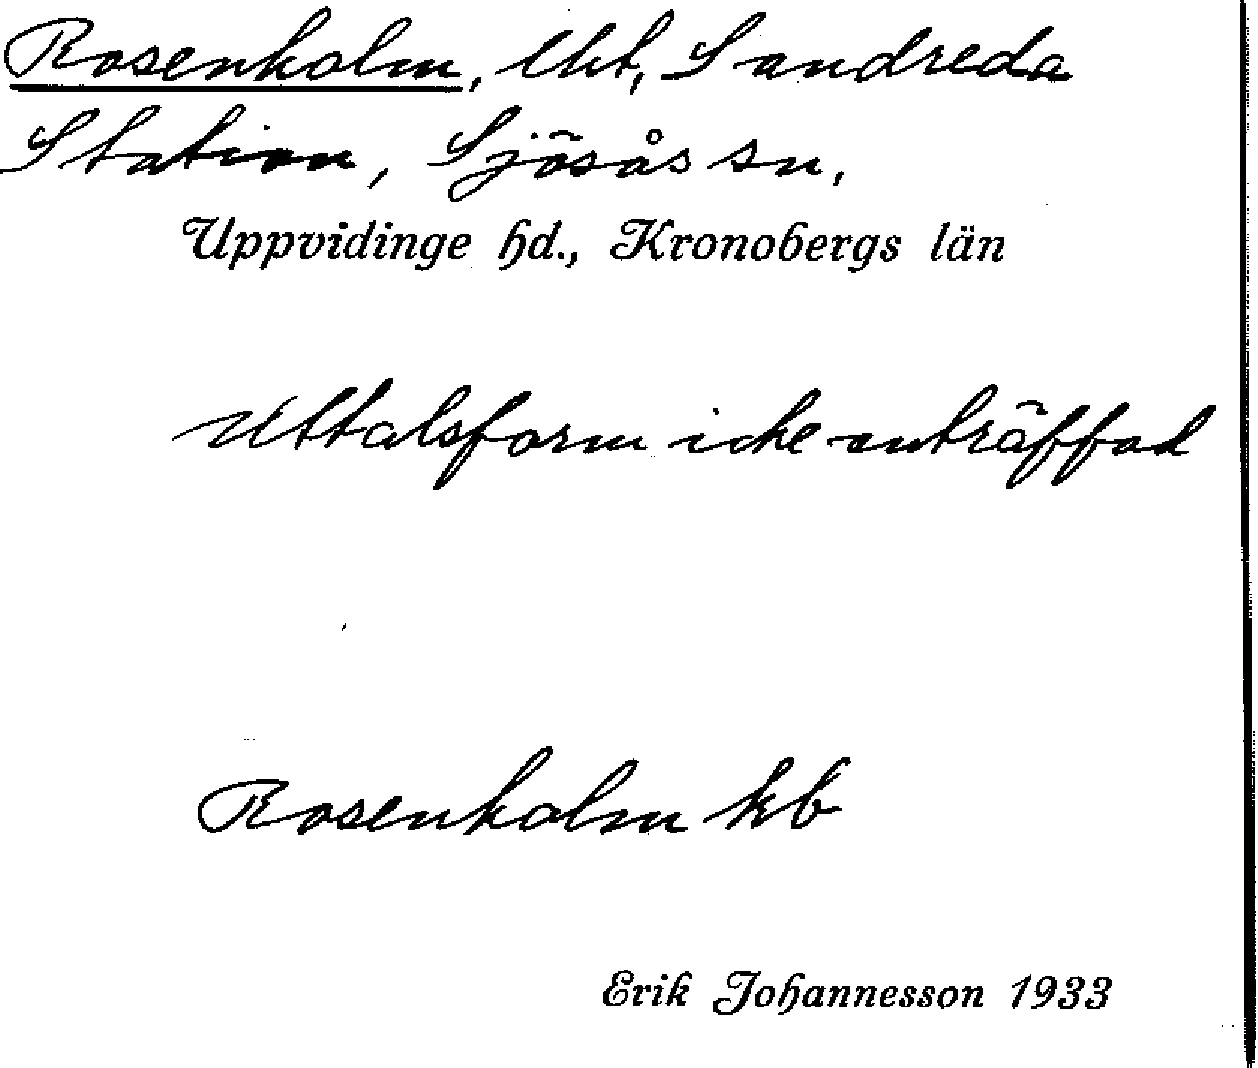 Rosenholm, lht, Sandreda
Station, Sjösås sn,
Uppvidinge hd., Kronobergs län
Uttalsform icke anträffad
Rosenholm kb
Erik Johannesson 1933